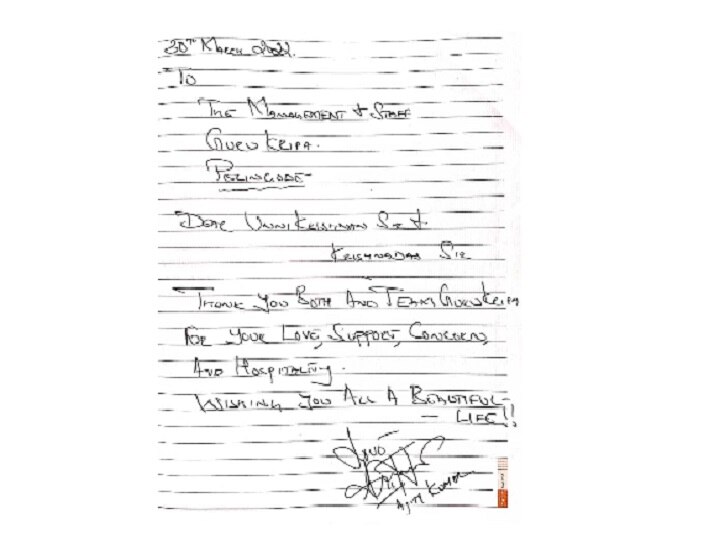 30th March 2022.
To
The Management & Staff
Gurukripa.
Peringode
Dear Unnikrishnan Sir &
Krishnadas Sir
Thank You Both And Team Gurukripa
For Your Love, Support, Concern,
And Hospitality.
Wishing You All A Beautiful
— Life!!
Love
Ajit Kumar